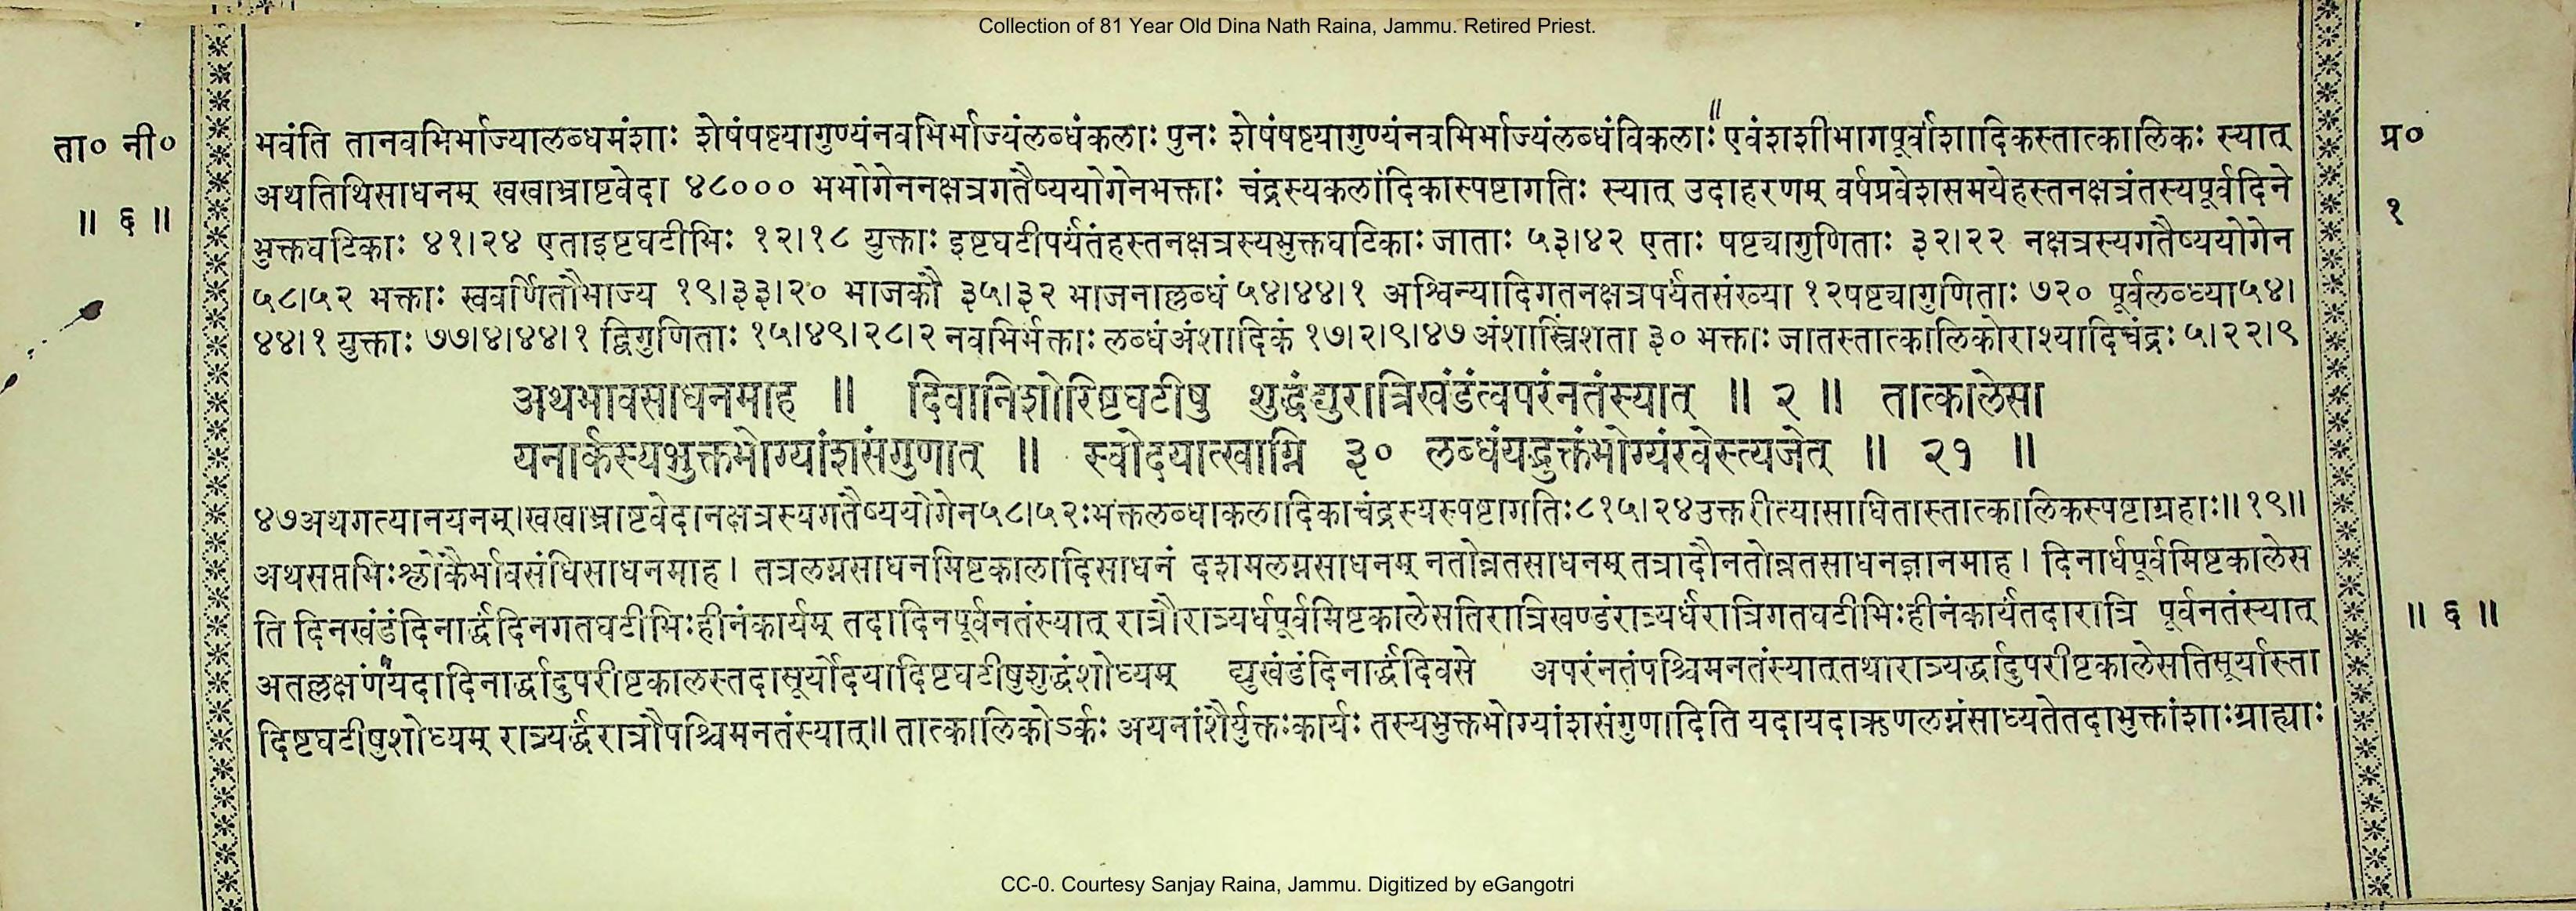 Collection of 81 Year Old Dina Nath Raina, Jammu. Retired Priest.
ता० नी०
॥ ६ ॥
प्र०
१
भवंति तानवभिर्भाज्यालब्धमंशाः शेषंषष्टयागुण्यंनवभिर्भाज्यंलब्धंकलाः पुनः शेषंषष्टयागुण्यंनवभिर्भाज्यंलब्धंविकलाः॥ एवंशशीभागपूर्वाशादिकस्तात्कालिकः स्यात्
अथतिथिसाधनम् खखाभ्राष्टवेदा ४८००० भभोगेननक्षत्रगतैष्ययोगेनभक्ताः चंद्रस्यकलादिकास्पष्टागतिः स्यात् उदाहरणम् वर्षप्रवेशसमयेहस्तनक्षत्रंतस्यपूर्वदिने
भुक्तघटिकाः ४१।२४ एताइष्टघटीभिः १२।१८ युक्ताः इष्टघटीपर्यंतंहस्तनक्षत्रस्यभुक्तघटिकाः जाताः ५३।४२ एताः षष्ट्यागुणिताः ३२।२२ नक्षत्रस्यगतैष्ययोगेन
५८।५२ भक्ताः स्ववर्णितौभाज्य १९।३३।२० भाजकौ ३५।३२ भाजनाल्लब्धं ५४।४४।१ अश्विन्यादिगतनक्षत्रपर्यंतसंख्या १२षष्ट्यागुणिताः ७२० पूर्वलब्ध्या५४।
४४।१ युक्ताः ७७।४।४४।१ द्विगुणिताः १५।४९।२८।२ नवभिर्भक्ताः लब्धंअंशादिकं १७।२।९।४७ अंशास्त्रिंशता ३० भक्ताः जातस्तात्कालिकोराश्यादिचंद्रः ५।२२।९
अथभावसाधनमाह ॥ दिवानिशोरिष्टघटीषु शुद्धंद्युरात्रिखंडंत्वपरंनतंस्यात् ॥ २ ॥ तात्कालेसा
यनार्कस्यभुक्तभोग्यांशसंगुणात् ॥ स्वोदयात्खाग्नि ३० लब्धंयद्भुक्तंभोग्यंरवेस्त्यजेत् ॥ २१ ॥
४७अथगत्यानयनम्।खखाभ्राष्टवेदानक्षत्रस्यगतैष्ययोगेन५८।५२ःभक्तलब्धाकलादिकाचंद्रस्यस्पष्टागतिः८१५।२४उक्तरीत्यासाधितास्तात्कालिकस्पष्टाग्रहाः॥१९॥
अथसप्तभिःश्लोकैर्भावसंधिसाधनमाह। तत्रलग्नसाधनमिष्टकालादिसाधनं दशमलग्नसाधनम् नतोन्नतसाधनम् तत्रादौनतोन्नतसाधनज्ञानमाह। दिनार्धपूर्वमिष्टकालेस
ति दिनखंडंदिनार्द्धंदिनगतघटीभिःहीनंकार्यम् तदादिनपूर्वनतंस्यात् रात्रौरात्र्यर्धपूर्वमिष्टकालेसतिरात्रिखण्डंरात्र्यर्धरात्रिगतघटीभिःहीनंकार्यंतदारात्रि पूर्वनतंस्यात्
॥ ६ ॥
अतल्लक्षणं॥यदादिनार्द्धादुपरीष्टकालस्तदासूर्योदयादिष्टघटीषुशुद्धंशोध्यम् द्युखंडंदिनार्द्धंदिवसे अपरंनतंपश्चिमनतंस्यात्तथारात्र्यर्द्धादुपरीष्टकालेसतिसूर्यास्ता
दिष्टघटीषुशोध्यम् रात्र्यर्द्धंरात्रौपश्चिमनतंस्यात्॥ तात्कालिकोऽर्कः अयनांशैर्युक्तःकार्यः तस्यभुक्तभोग्यांशसंगुणादिति यदायदाऋणलग्नंसाध्यतेतदाभुक्तांशाःग्राह्याः
CC-0. Courtesy Sanjay Raina, Jammu. Digitized by eGangotri